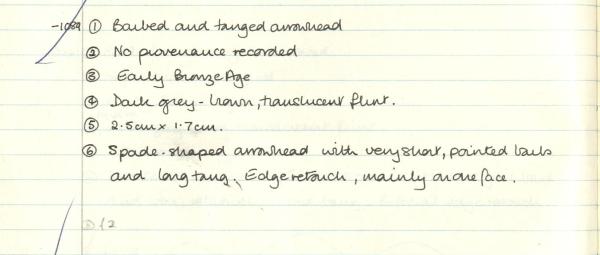 -1089 ① Barbed and tanged arrowhead
② No provenance recorded
③ Early Bronze Age
④ Dark grey-brown, translucent flint.
⑤ 2.5cm x 1.7cm.
⑥ Spade-shaped arrowhead with very short, pointed barbs
and long tang. Edge retouch, mainly on one face.